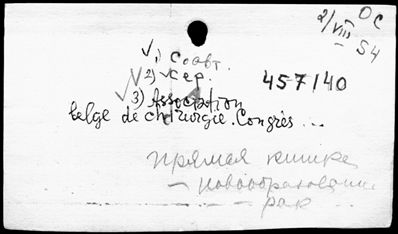 2/VIII 54
ОС
✓ 1) Соавт.
✓✓ 2) ✓ Сер.
457/40
✓ 3) Association
belge de chirurgie. Congrès ...
прямая кишка
— новообразования
— рак ...